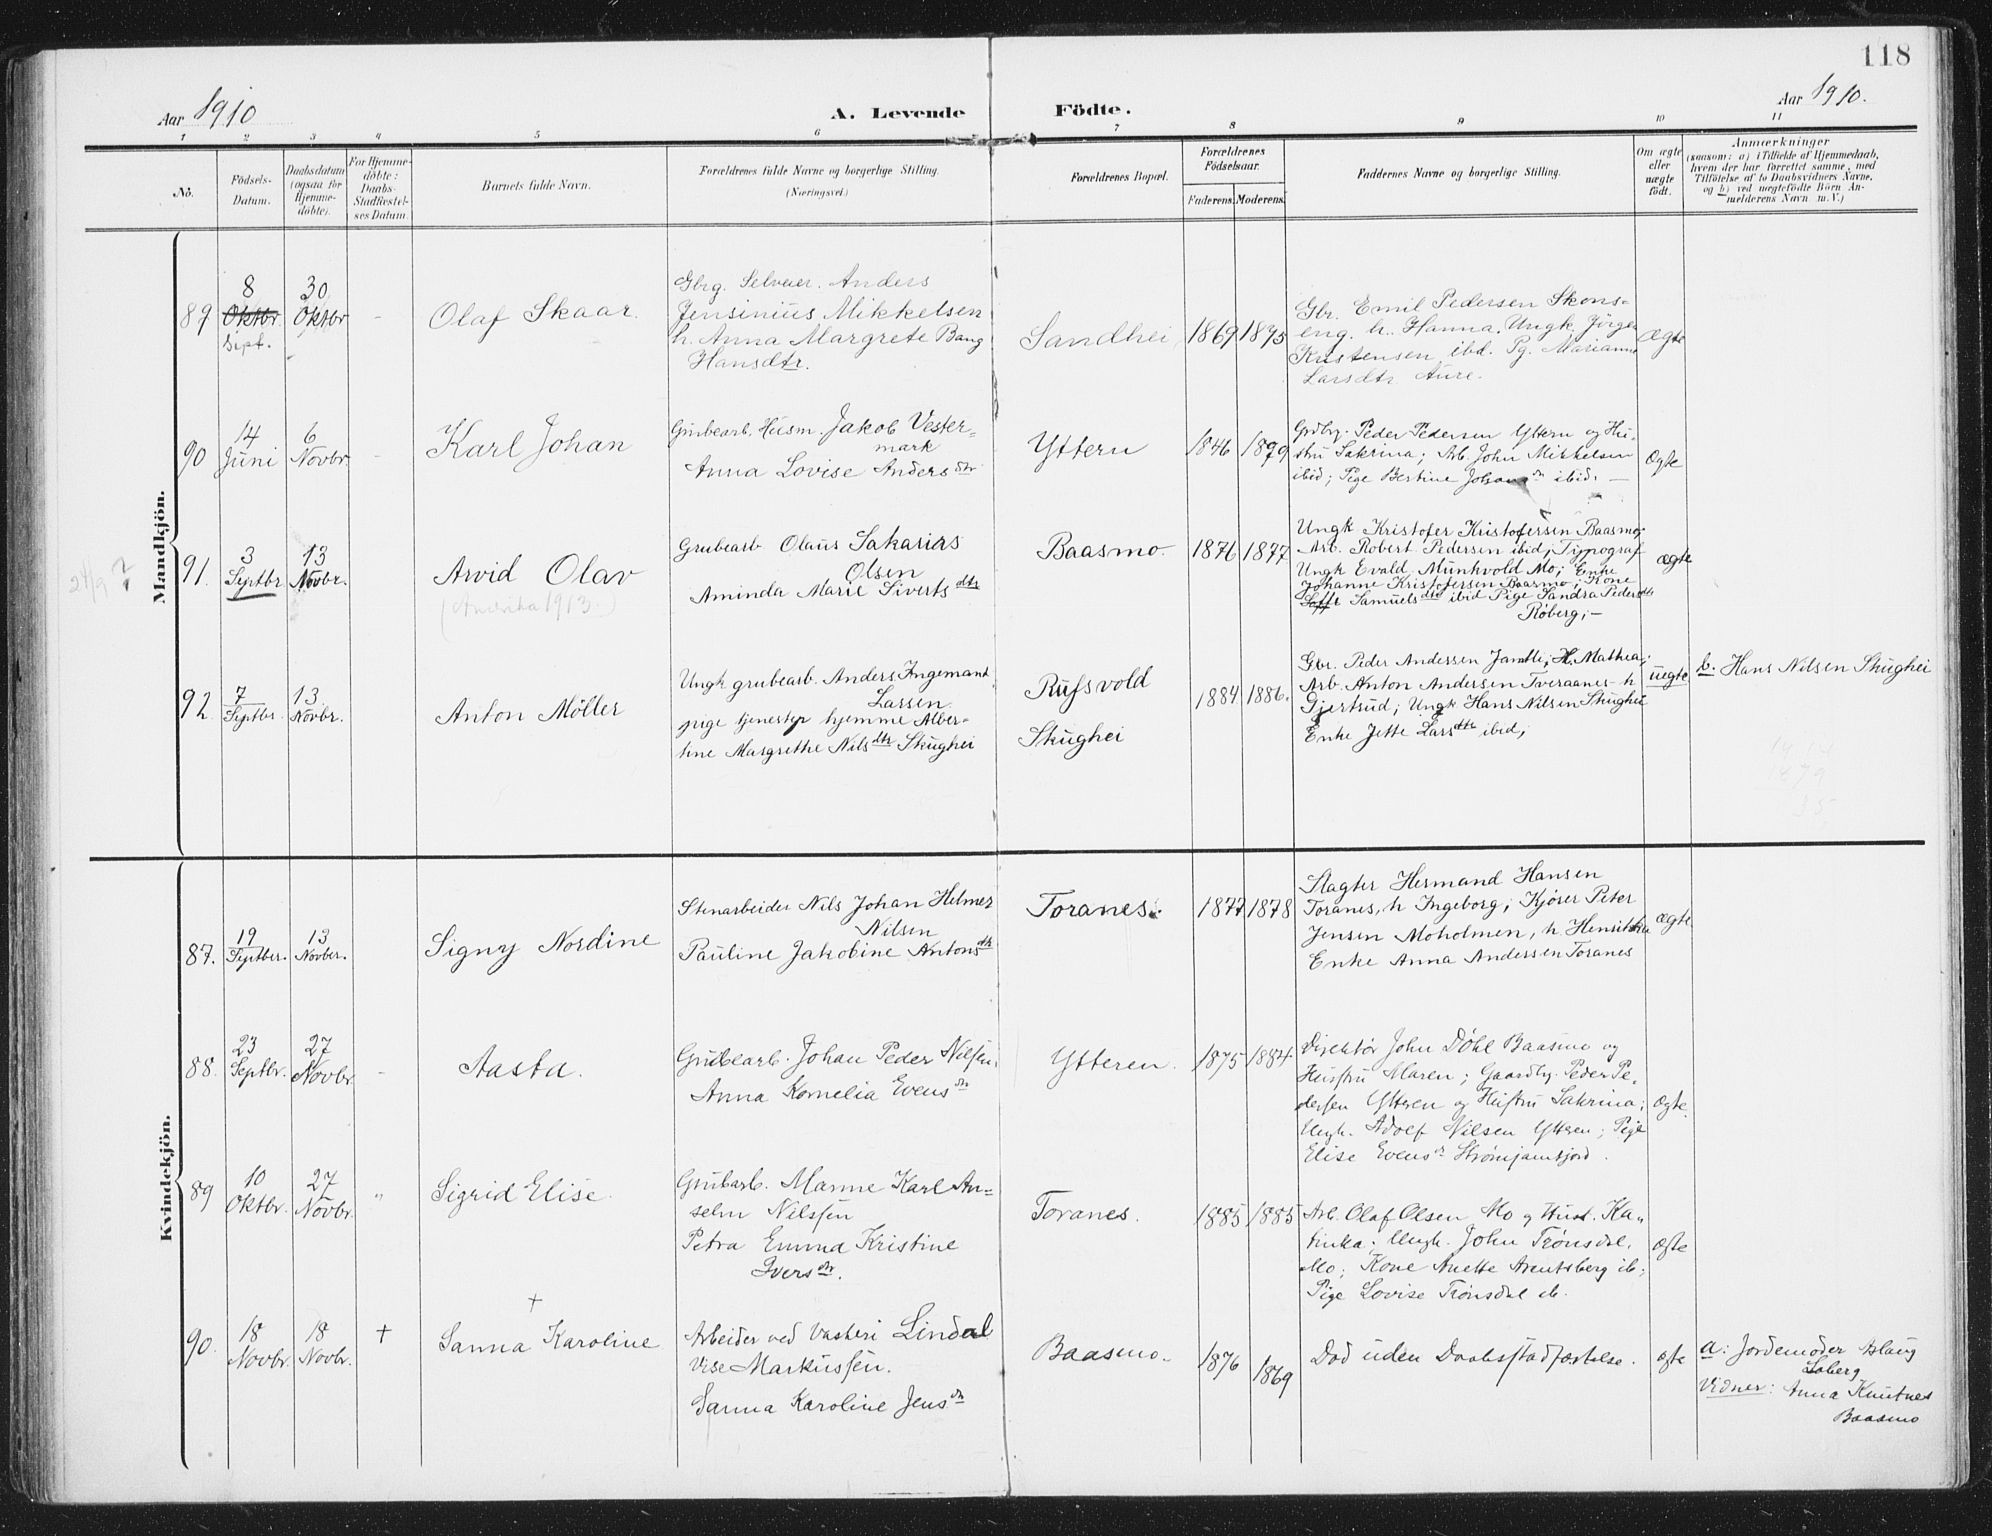 118
Aar 1910
A. Levende Födte.
Aar 1910.
1 2 3 4 5 6 7 8 9 10 11
No.
Födsels-
Datum.
Daabsdatum
(ogsaa for
Hjemme-
döbte).
For Hjemme-
döbte:
Daabs-
Stadfæstel-
ses Datum.
Barnets fulde Navn.
Forældrenes fulde Navne og borgerlige Stilling.
(Næringsvei.)
Forældrenes Bopæl.
Forældrenes
Födselsaar.
Faderens. Moderens.
Faddernes Navne og borgerlige Stilling.
Om ægte
eller
uægte
födt.
Anmærkninger
(saasom: a) i Tilfælde af Hjemmedaab,
hvem der har forrettet samme, med
Tilföielse af to Daabsvidners Navne,
og b) ved uegtefödte Börn An-
melderens Navn m. V.)
Mandkjön.
89
8
Oktbr.
Sept.
30
Oktbr
Olaf Skaar.
Gbrg. Selveier. Anders
Jensinius Mikkelsen
h. Anna Margrete Bang
Hansdtr.
Sandhei
1869
1875
Gbr. Emil Pedersen Skons-
eng. h. Hanna. Ungk. Jörgen
Kristensen ibd. Pg. Marianne
Larsdtr Aure.
Ægte
90
14
Juni
6
Novbr.
Karl Johan
Grubearb. Husm. Jakob Vester-
mark
Anna Lovise Andersdtr
Yttern
1846
1879
Grdbr. Peder Pedersen Yttern og Hu-
stru Sakrina; Arb. John Mikkelsen
ibid; Pige Bertine Johansdr ibid. —
Ægte
91.
3
Septbr.
13
Novbr.
Arvid Olav
(Amerika 1913.)
Grubearb Olaus Sakarias
Olsen
Aminda Marie Sivertsdtr
Baasmo.
1876
1877
Ungk Kristofer Kristofersen Baasmo;
Arb. Robert Pedersen ibid; Typograf
Ungk Evald Munkvold Mo; Enke
Johanne Kristofersen Baasmo; Kone
Samuelsdtr ibid Pige Sandra Pedersdtr
Röberg; —
ægte
92.
7
Septbr.
13.
Novbr.
Anton Möller
Ungk grubearb. Anders Ingemant
Larsen
pige tjenester hjemme Alber-
tine Margrethe Nilsdtr Skughei
Rufsvold
Skughei
1884
1886.
Gbr. Peder Andersen Jamtli; H. Mathea;
Arb. Anton Andersen Tveraanes h
Gjertrud; Ungk Hans Nilsen Skughei
Enke Jette Larsdtr ibid;
uegte
b. Hans Nilsen Skughei
1914
1879
35
Kvindekjön.
87.
19
Septber.
13
Novber.
Signy Nordine
Stenarbeider Nils Johan Helmer
Nilsen
Pauline Jakobine Antonsdtr
Toranes.
1877
1878
Slagter Hermand Hansen
Toranes, h Ingeborg; Kjörer Peter
Jensen Moholmen, h Henrikka
Enke Anna Andersen Toranes
ægte
88.
23
Septbr.
27
Novbr.
Aasta.
Grubearb. Johan Peder Nilsen.
Anna Kornelia Evensdr
Ytteren.
1875
1884
Direktör John Döhl Baasmo og
Hustru Maren; Gaardbr. Peder Pe-
dersen Ytteren og Hustru Sakrina;
Ungk. Adolf Nilsen Ytteren; Pige
Elise Evensdr Strömjamtfjord.
Ægte.
89
10
Oktbr.
27
Novbr.
"
Sigrid Elise.
Grubarb. Manne Karl An-
selm Nilssen
Petra Emma Kristine
Iversdtr.
Toranes.
1885
1885
Arb. Olaf Olsen Mo og Hust. Ka-
tinka; Ungk. John Trönsdal,
Mo; Kone Anette Arentsberg ib;
Pige Lovise Trönsdal ib.
Ægte
90.
18
Novbr.
18
Novbr.
+
+
Sanna Karoline
Arbeider ved Vaskeri Lindal
Vise Markussen.
Sanna Karoline Jensdr
Baasmo.
1876
1869
Död uden Daabsstadfæstelse.
Ægte
a: Jordemoder Aslaug
Soberg
Vidner: Anna Knutnes
Baasmo